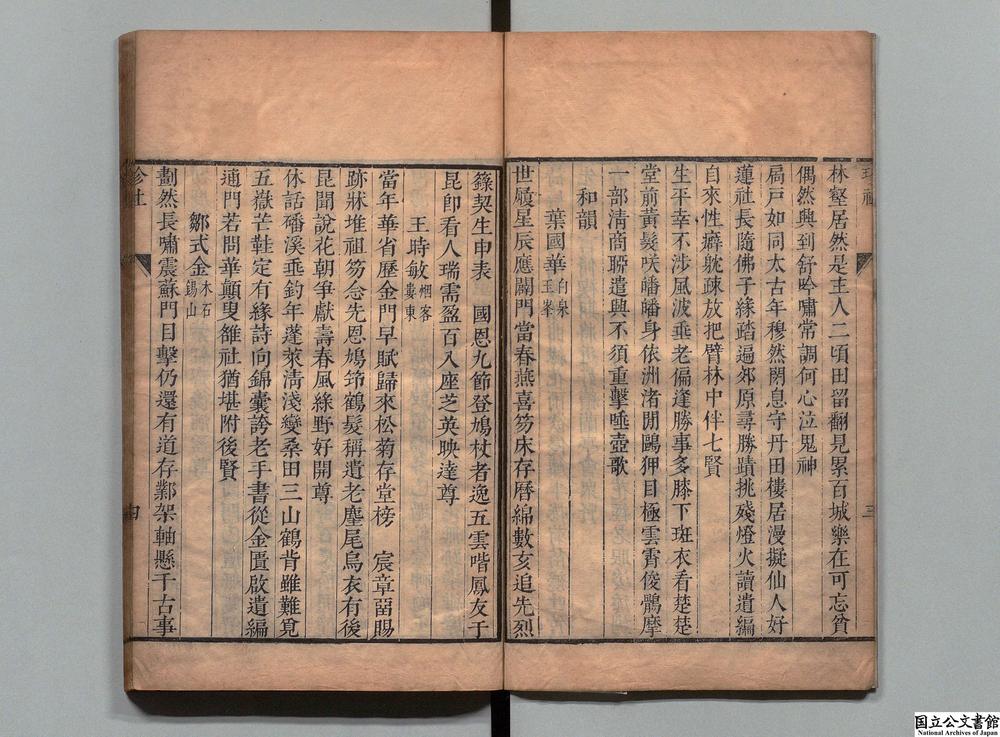 林壑居然是主人二頃田留翻見累百城樂在可忘貧
偶然興到舒吟嘯常調何心泣鬼神
扃戸如同太古年穆然閉息守丹田樓居漫擬仙人好
蓮社長隨佛子緣踏遍郊原尋勝蹟挑殘燈火讀遺編
自來性癖躭疎放把臂林中伴七賢
生平幸不涉風波垂老偏逢勝事多膝下斑衣看楚楚
堂前黃髮咲皤皤身依洲渚閒鷗狎目極雲霄俊鶻摩
一部清商聊遣興不須重擊唾壺歌
和韻
葉國華白泉玉峯
世履星辰應闢門當春燕喜笏床存曆綿數亥追先烈
籙契生申表 國恩九節登鳩杖者逸五雲喈鳳友于
昆卽看人瑞需盈百入座芝英映達尊
王時敏烟客婁東
當年華省歷金門早賦歸來松菊存堂榜 宸章曾賜
跡牀堆祖笏念先恩鳩筇鶴髮稱遺老麈尾烏衣有後
昆聞說花朝爭獻壽春風綠野好開尊
休話磻溪垂釣年蓬萊淸淺變桑田三山鶴背雖難覓
五嶽芒鞋定有緣詩向錦囊誇老手書從金匱啟遺編
通門若問華顚叟雒社猶堪附後賢
鄒式金木石錫山
劃然長嘯震蘇門目擊仍還有道存鄴架軸懸千古事
三
四
国立公文書館
National Archives of Japan